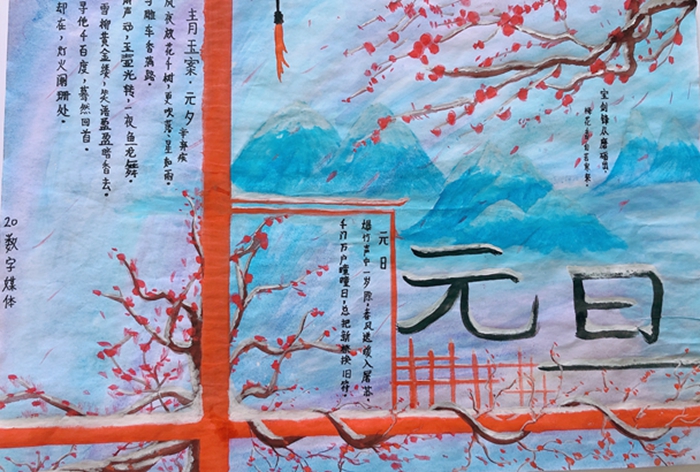 宝剑锋从磨砺出,
梅花香自苦寒来。
元旦
元日
爆竹声中一岁除,春风送暖入屠苏。
千门万户曈曈日,总把新桃换旧符。
青玉案·元夕 辛弃疾
风夜放花千树,更吹落、星如雨。
雕车香满路。
声动,玉壶光转,一夜鱼龙舞。
雪柳黄金缕,笑语盈盈暗香去。
寻他千百度,蓦然回首。
却在,灯火阑珊处。
20数字媒体